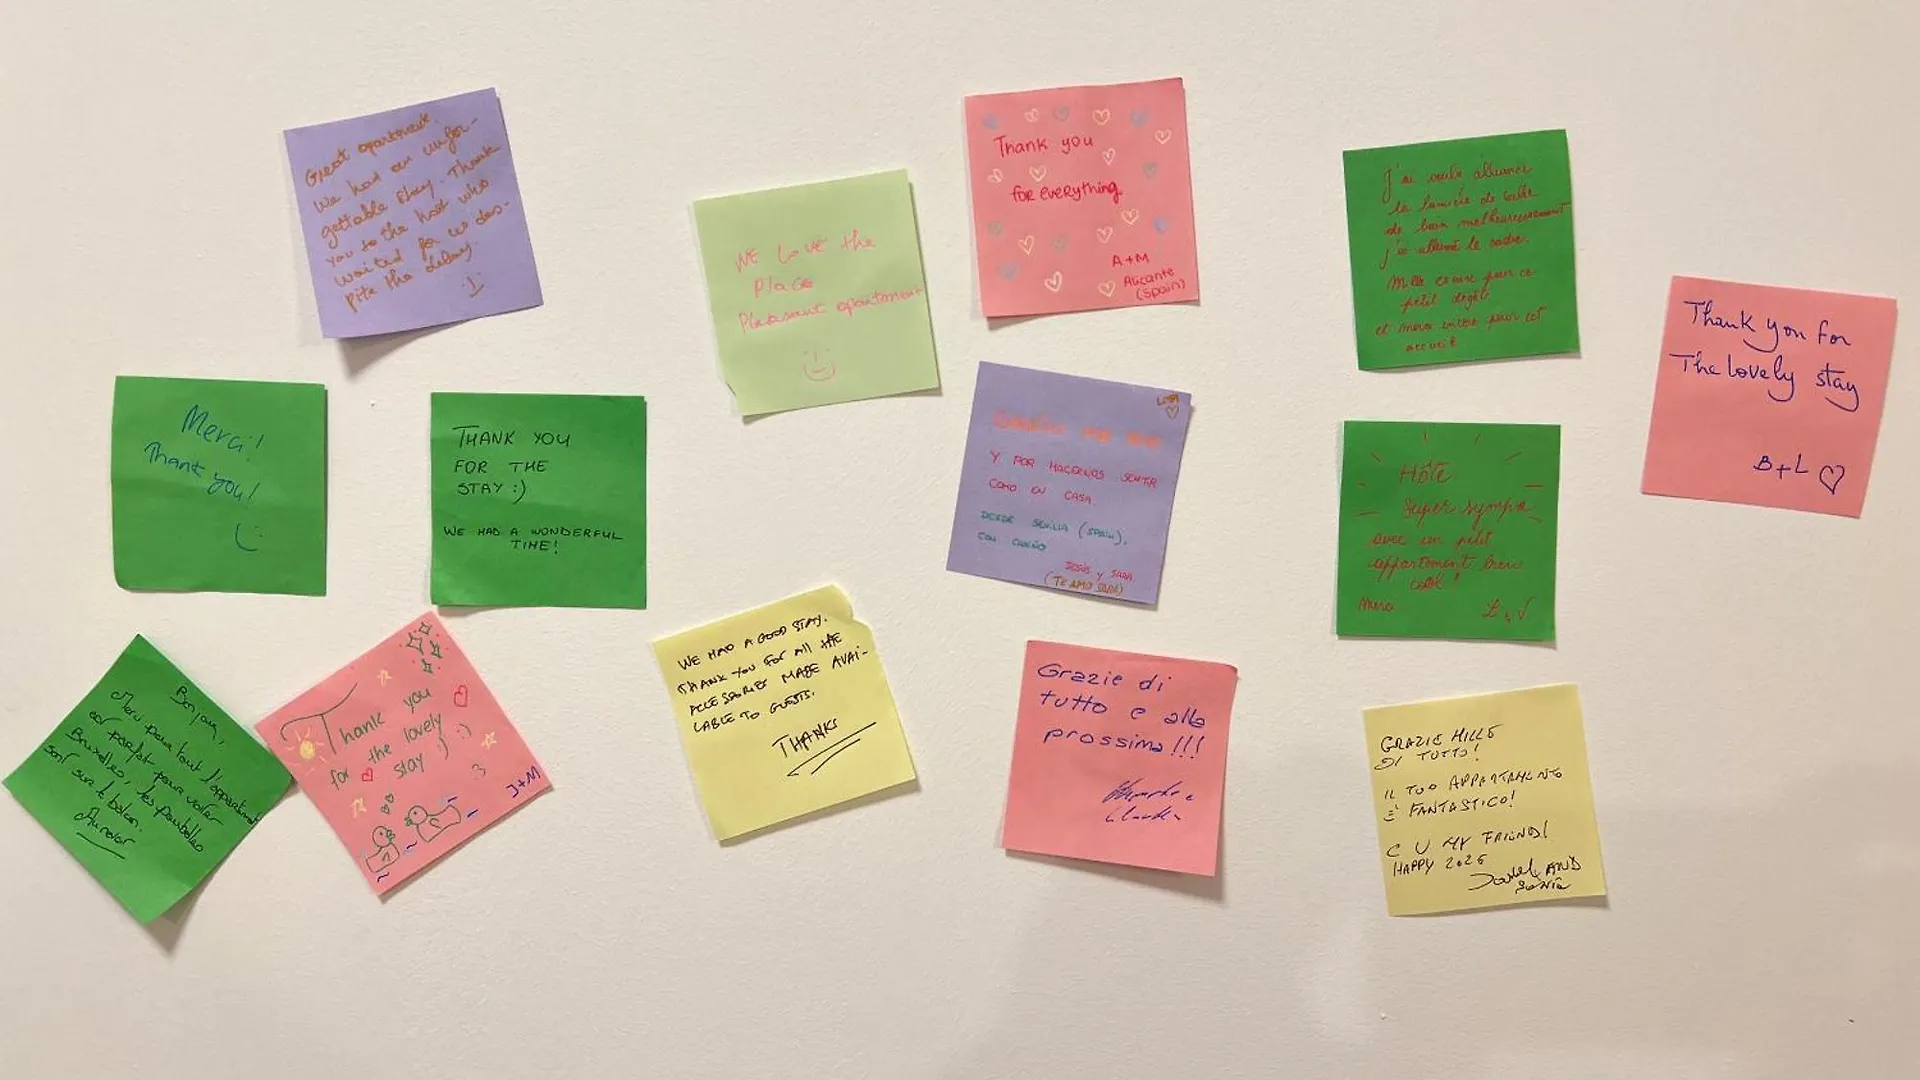 Great apartment.
We had an unfor-
gettable stay. Thank
you to the host who
waited for us des-
pite the delay.
:)
WE LOVE the
PLACE
Pleasant apartment
Thank you
for everything.
A+M
Alicante
(Spain)
J'ai voulu allumer
la lumière de salle
de bain malheureusement
j'ai allumé le radio.
Mille excuse pour ce
petit dégât
et merci encore pour cet
accueil
Thank you for
The lovely stay
B+L
Merci!
Thank you!
THANK YOU
FOR THE
STAY :)
WE HAD A WONDERFUL
TIME!
Y POR HACERNOS SENTIR
COMO EN CASA.
DESDE SEVILLA (SPAIN),
CON CARIÑO
JESÚS Y SARA
(TE AMO SARA)
Hôte
Super sympa
avec un petit
appartement bien
cool!
Merci
Bonjour,
Merci pour tout l'appartement
est parfait pour visiter
Bruxelles, les poubelles
sont sur le balcon.
Thank you
for the lovely
stay :) :)
J+M
WE HAD A GOOD STAY.
THANK YOU FOR ALL THE
ACCESSORIES MADE AVAI-
LABLE TO GUESTS.
THANKS
Grazie di
tutto e alla
prossima!!!
GRAZIE MILLE
DI TUTTO!
IL TUO APPARTAMENTO
È FANTASTICO!
C U MY FRIEND!
HAPPY 2026
AND